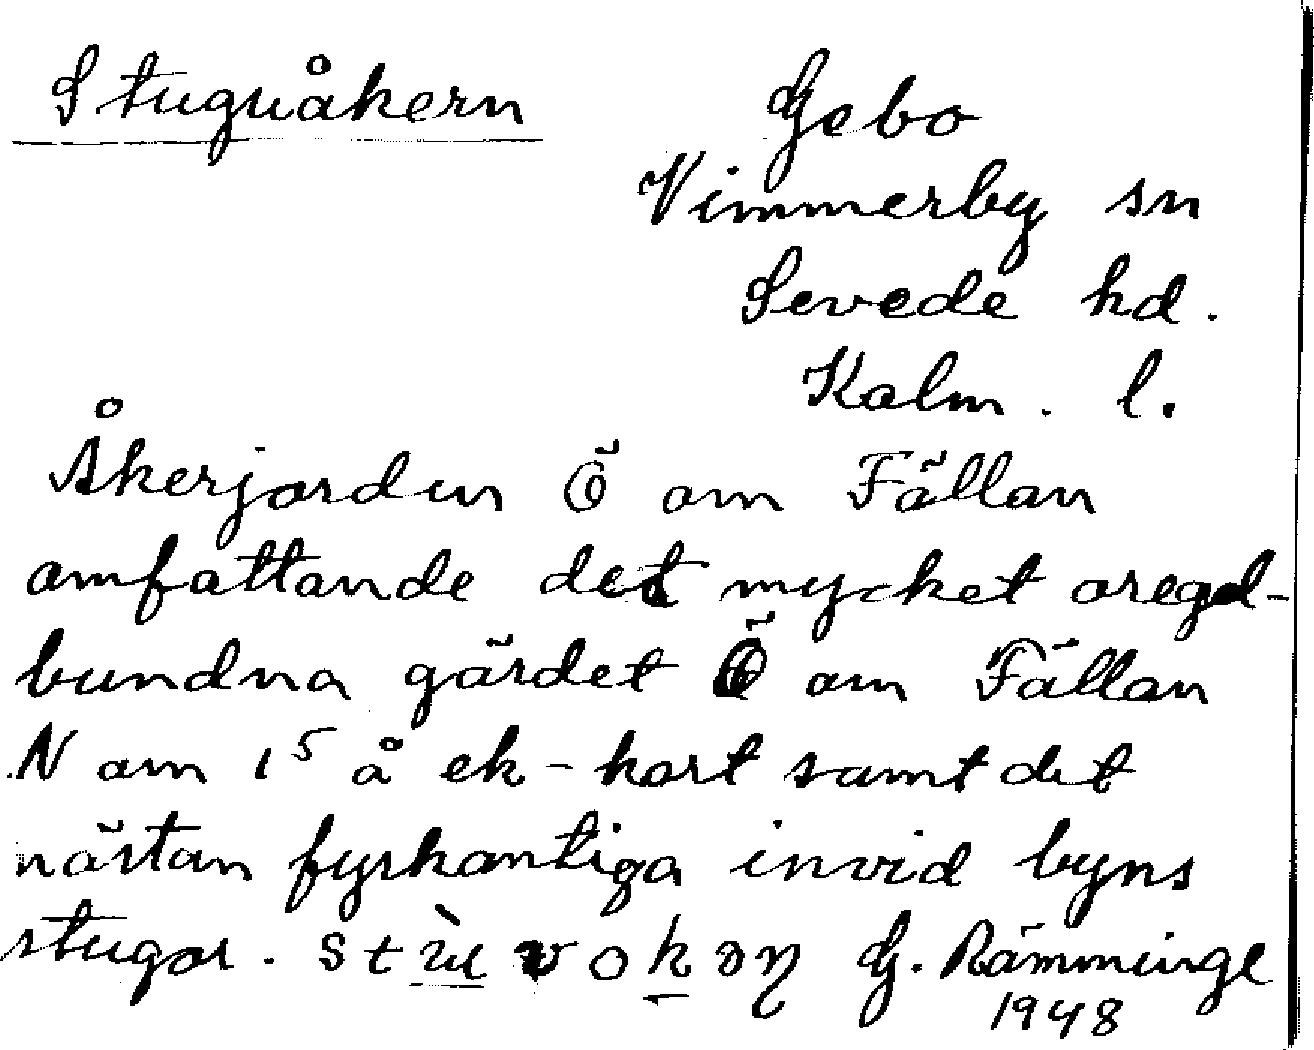 Stuguåkern
Gebo
Vimmerby sn
Sevede hd.
Kalm. l.
Åkerjorden Ö om Fällan
omfattande det mycket oregel-
bundna gärdet Ö om Fällan
N om 1⁵ å ek-kart samt det
nästan fyrkantiga invid byns
stugor. G. Rämminge
1948